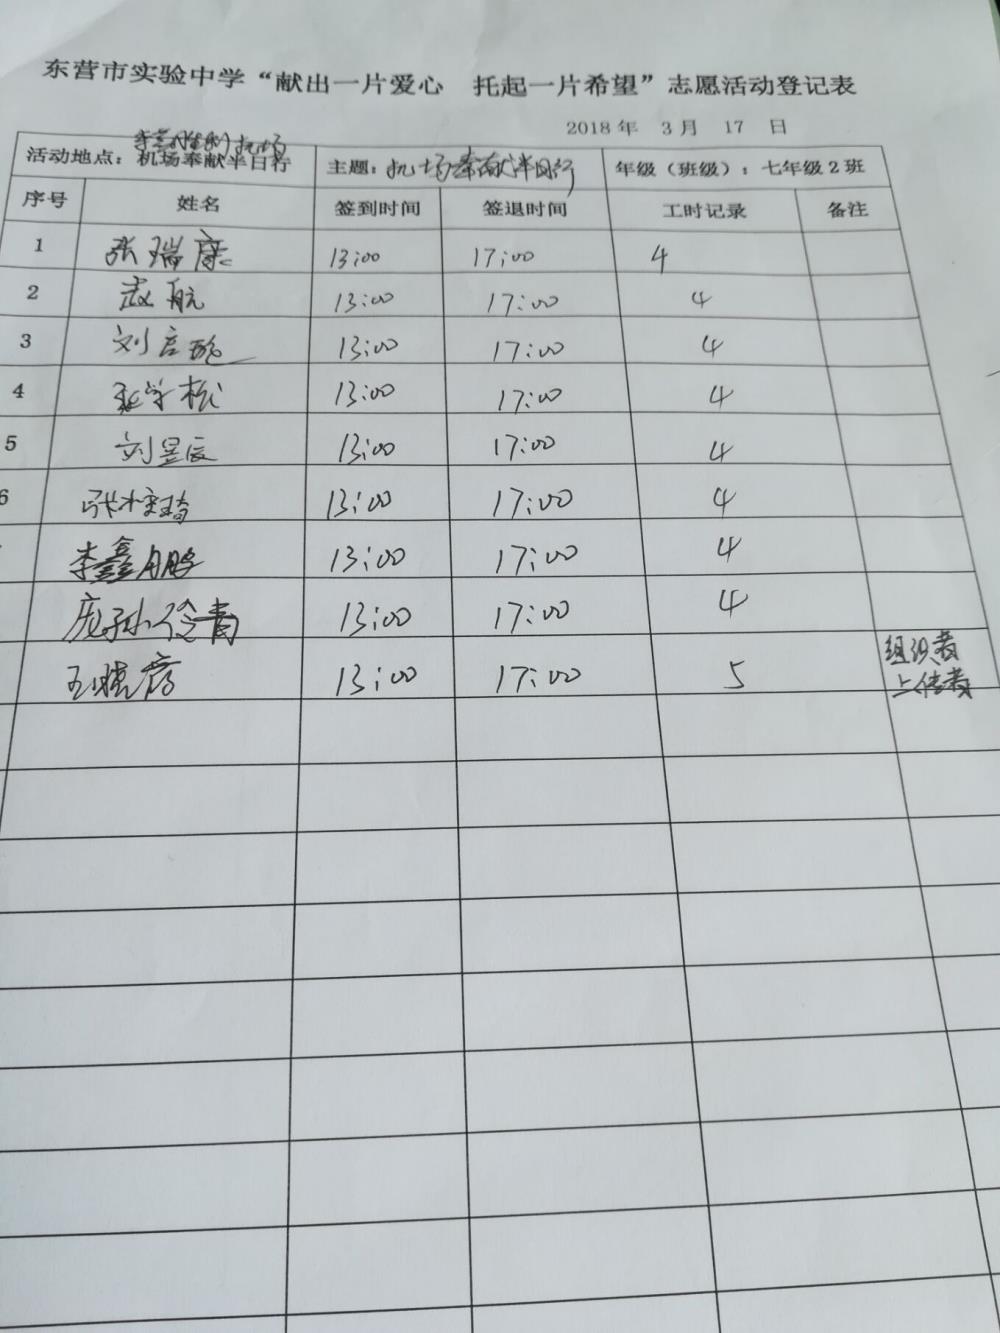 东营市实验中学“献出一片爱心 托起一片希望”志愿活动登记表
2018 年 3 月 17 日
东营胜利机场
活动地点：机场奉献半日行 主题：机场奉献半日行 年级（班级）：七年级2班
序号 姓名 签到时间 签退时间 工时记录 备注
1 张瑞康 13:00 17:00 4
2 赵航 13:00 17:00 4
3 刘言 13:00 17:00 4
4 张学松 13:00 17:00 4
5 刘昱辰 13:00 17:00 4
6 张 琦 13:00 17:00 4
李鑫鹏 13:00 17:00 4
庞孙 13:00 17:00 4
王晓蓉 13:00 17:00 5 组织者
上传者